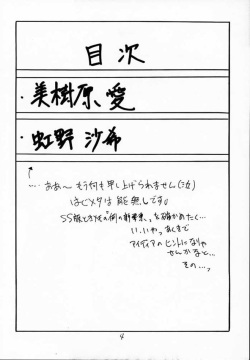 目次
・美樹原 愛
・虹野 沙希
↑
…. ああ〜 もう何も申し上げられません(泣)
はじメタは能無しです。
SS版ときメモの例の新事実、を確かめたく…
い、いや、あくまで
アイディアのヒントになりゃ
せんかなと…
その…っ
4